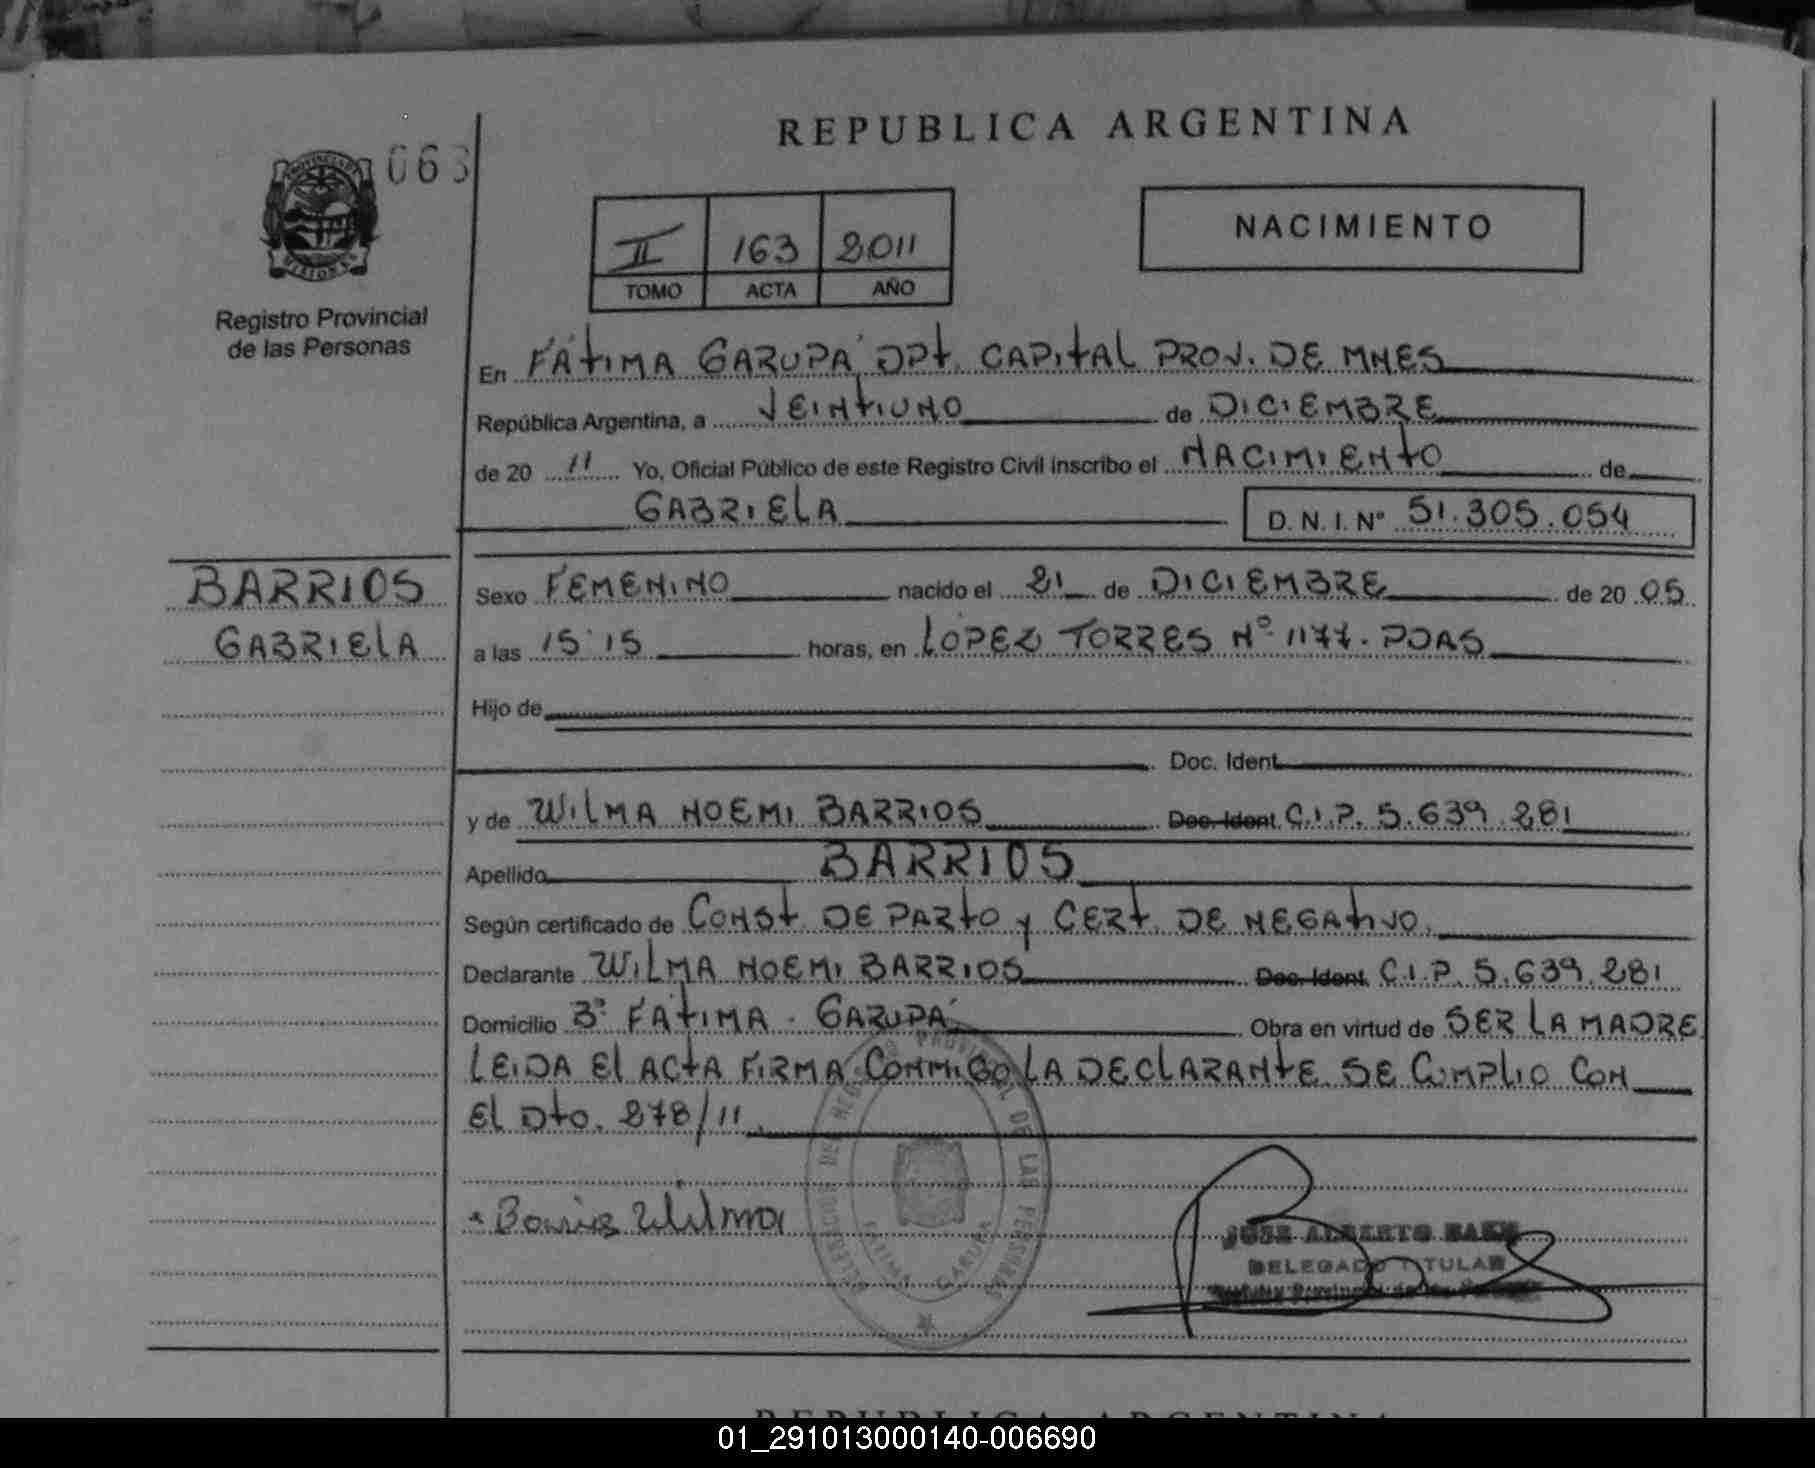 REPUBLICA ARGENTINA
063
PROVINCIA DE MISIONES
Registro Provincial
de las Personas
II 163 2011
TOMO ACTA AÑO
NACIMIENTO
En FÁTIMA GARUPÁ DPT. CAPITAL PROV. DE MNES
República Argentina, a VEINTIUNO de DICIEMBRE
de 20 11 Yo, Oficial Público de este Registro Civil inscribo el NACIMIENTO de
GABRIELA D. N. I. N° 51.305.054
BARRIOS
GABRIELA
Sexo FEMENINO nacido el 21 de DICIEMBRE de 20 05
a las 15:15 horas, en LOPEZ TORRES Nº 1177. PDAS
Hijo de
Doc. Ident.
y de WILMA NOEMI BARRIOS Doc. Ident. C.I.P. 5.639.281
Apellido BARRIOS
Según certificado de CONST. DE PARTO y CERT. DE NEGATIVO.
Declarante WILMA NOEMI BARRIOS Doc. Ident. C.I.P. 5.639.281
Domicilio Bº FÁTIMA - GARUPÁ Obra en virtud de SER LA MADRE
LEIDA El ACTA FIRMA CONMIGO LA DECLARANTE. SE CUMPLIO CON
El DTO. 278/11.
Barrios Wilma
PROVINCIAL DE LAS PERSONAS
FATIMA GARUPA
JOSE ALBERTO BAEZ
DELEGADO TITULAR
Registro Provincial de las Personas
REPUBLICA ARGENTINA
01_291013000140-006690